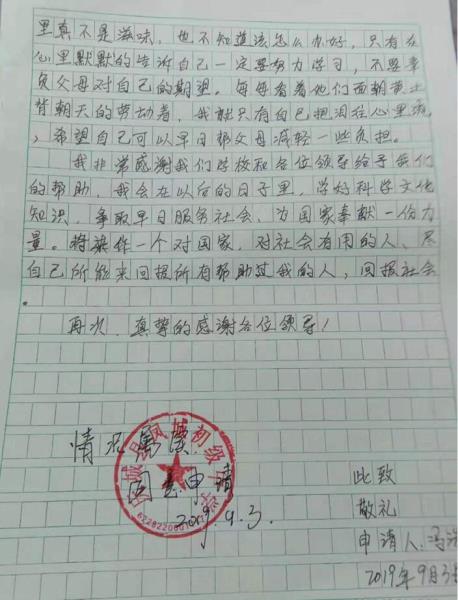 里真不是滋味，也不知道该怎么办好，只有在
心里默默的告诉自己一定要努力学习，不要辜
负父母对自己的期望。每每看着他们面朝黄土
背朝天的劳动着，我就只有自己把泪往心里流
，希望自己可以早日帮父母减轻一些负担。
我非常感谢我们学校和各位领导给予我们
的帮助，我会在以后的日子里，学好科学文化
知识，争取早日服务社会、为国家奉献一份力
量。将来作一个对国家，对社会有用的人、尽
自己所能来回报所有帮助过我的人，回报社会
.
再次，真挚的感谢各位领导！
情况属实
同意申请
2019.9.3.
城县凤城初级
此致
敬礼
申请人：冯
2019年9月3